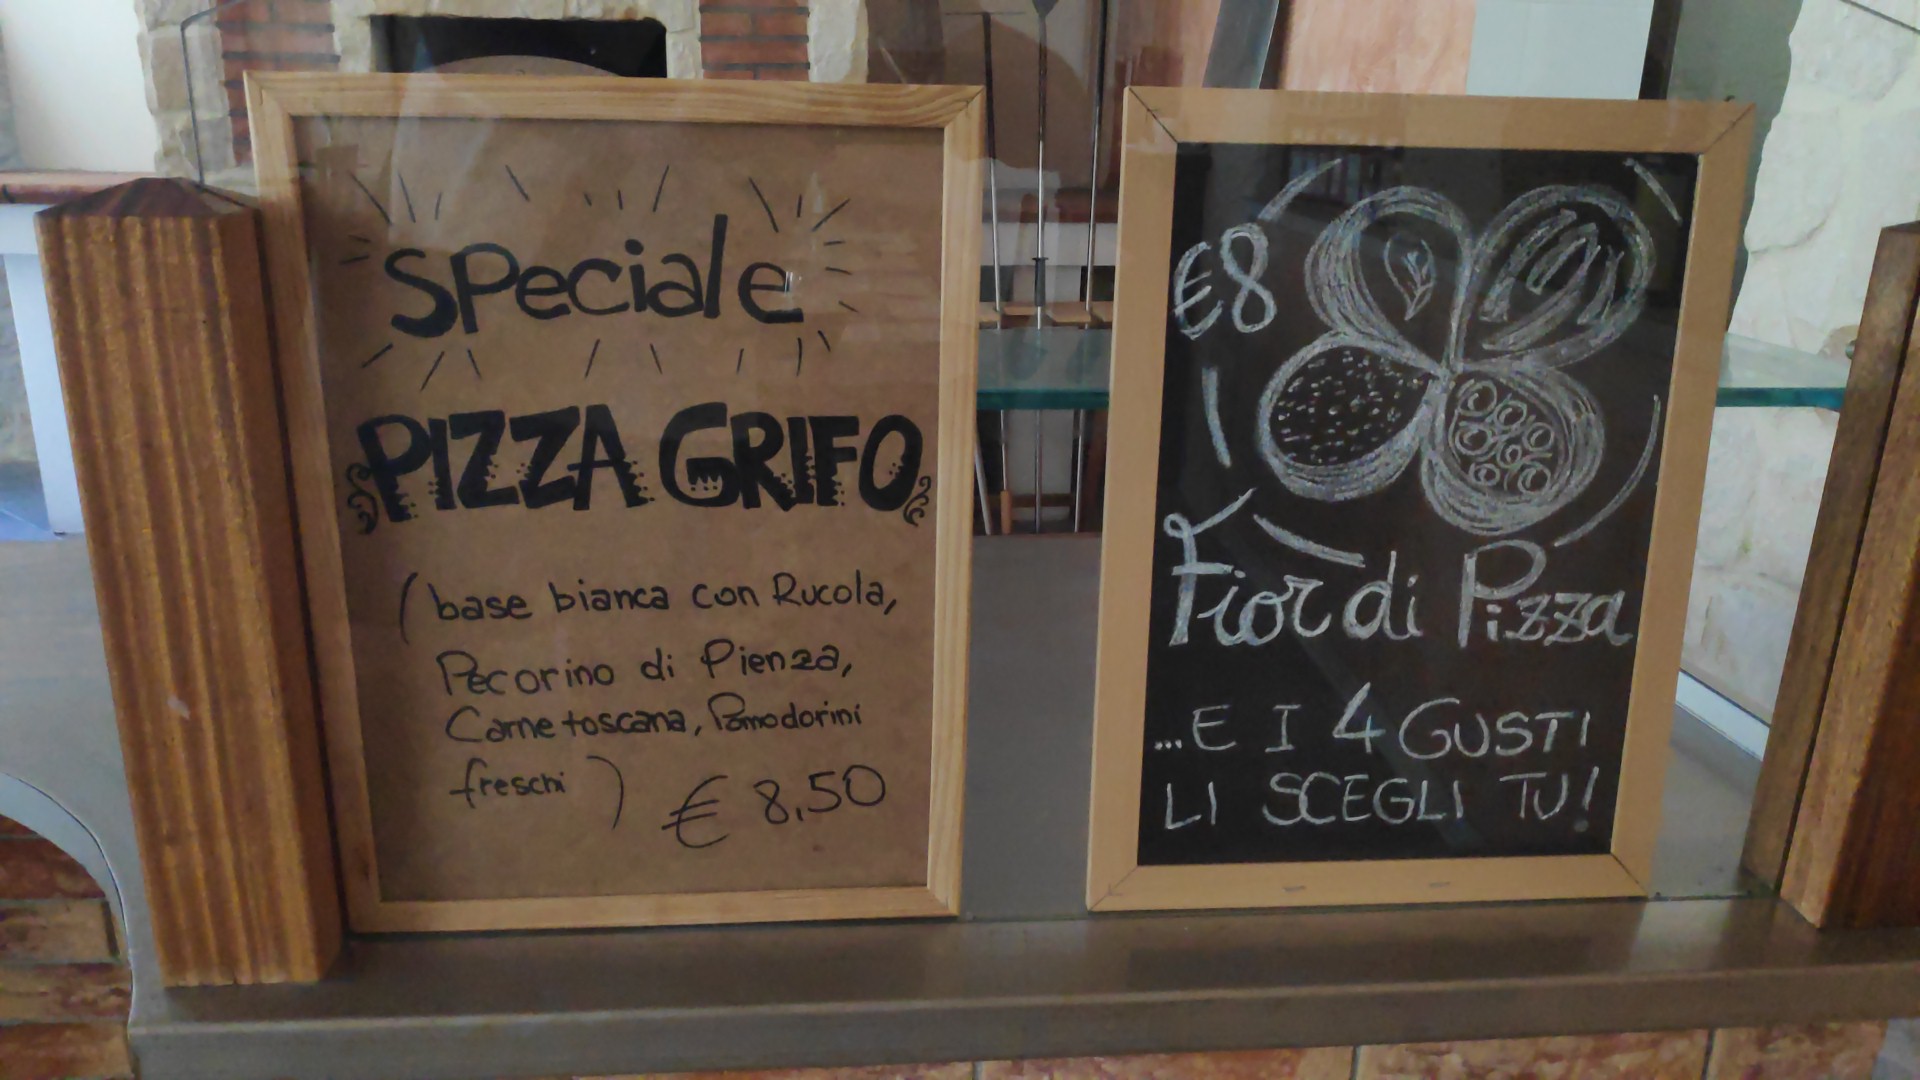 Speciale
PIZZA GRIFO
(base bianca con Rucola,
Pecorino di Pienza,
Carne toscana, Pomodorini
freschi)
€ 8,50
€8
Fior di Pizza
...E I 4 GUSTI
LI SCEGLI TU!